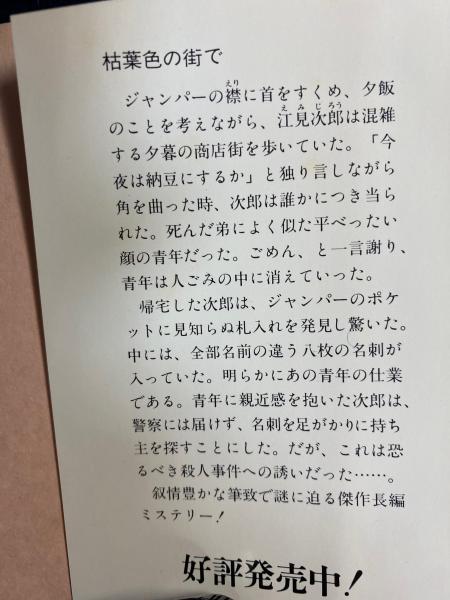 枯葉色の街で
ジャンパーの襟に首をすくめ、夕飯
のことを考えながら、江見次郎は混雑
する夕暮の商店街を歩いていた。「今
夜は納豆にするか」と独り言しながら
角を曲った時、次郎は誰かにつき当ら
れた。死んだ弟によく似た平べったい
顔の青年だった。ごめん、と一言謝り、
青年は人ごみの中に消えていった。
帰宅した次郎は、ジャンパーのポケ
ットに見知らぬ札入れを発見し驚いた。
中には、全部名前の違う八枚の名刺が
入っていた。明らかにあの青年の仕業
である。青年に親近感を抱いた次郎は、
警察には届けず、名刺を足がかりに持ち
主を探すことにした。だが、これは恐
るべき殺人事件への誘いだった……。
叙情豊かな筆致で謎に迫る傑作長編
ミステリー!
好評発売中!